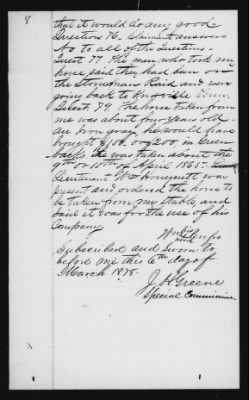 8
that it would do any good.
Questions 76. Claimant answers
No to all of the Questions.
Quest 77. The men who took my
horse said they had been on
the Stoneman Raid and were
going back to Knoxville, Tenn.
Quest. 79. The horse taken from
me was about four years old.
An iron gray, he would have
brought $100. or 200, in Green
backs. He was taken about the
9th or 10th of April 1865.
Lieutenant Wm Honeycutt was
present and ordered the horse to
be taken from my stable, and
said it was for the use of his
Company
Wm his mark
Subscribed and sworn to
before me this 6th day of
March 1878.
J. H. Greene
Special Commissioner
8